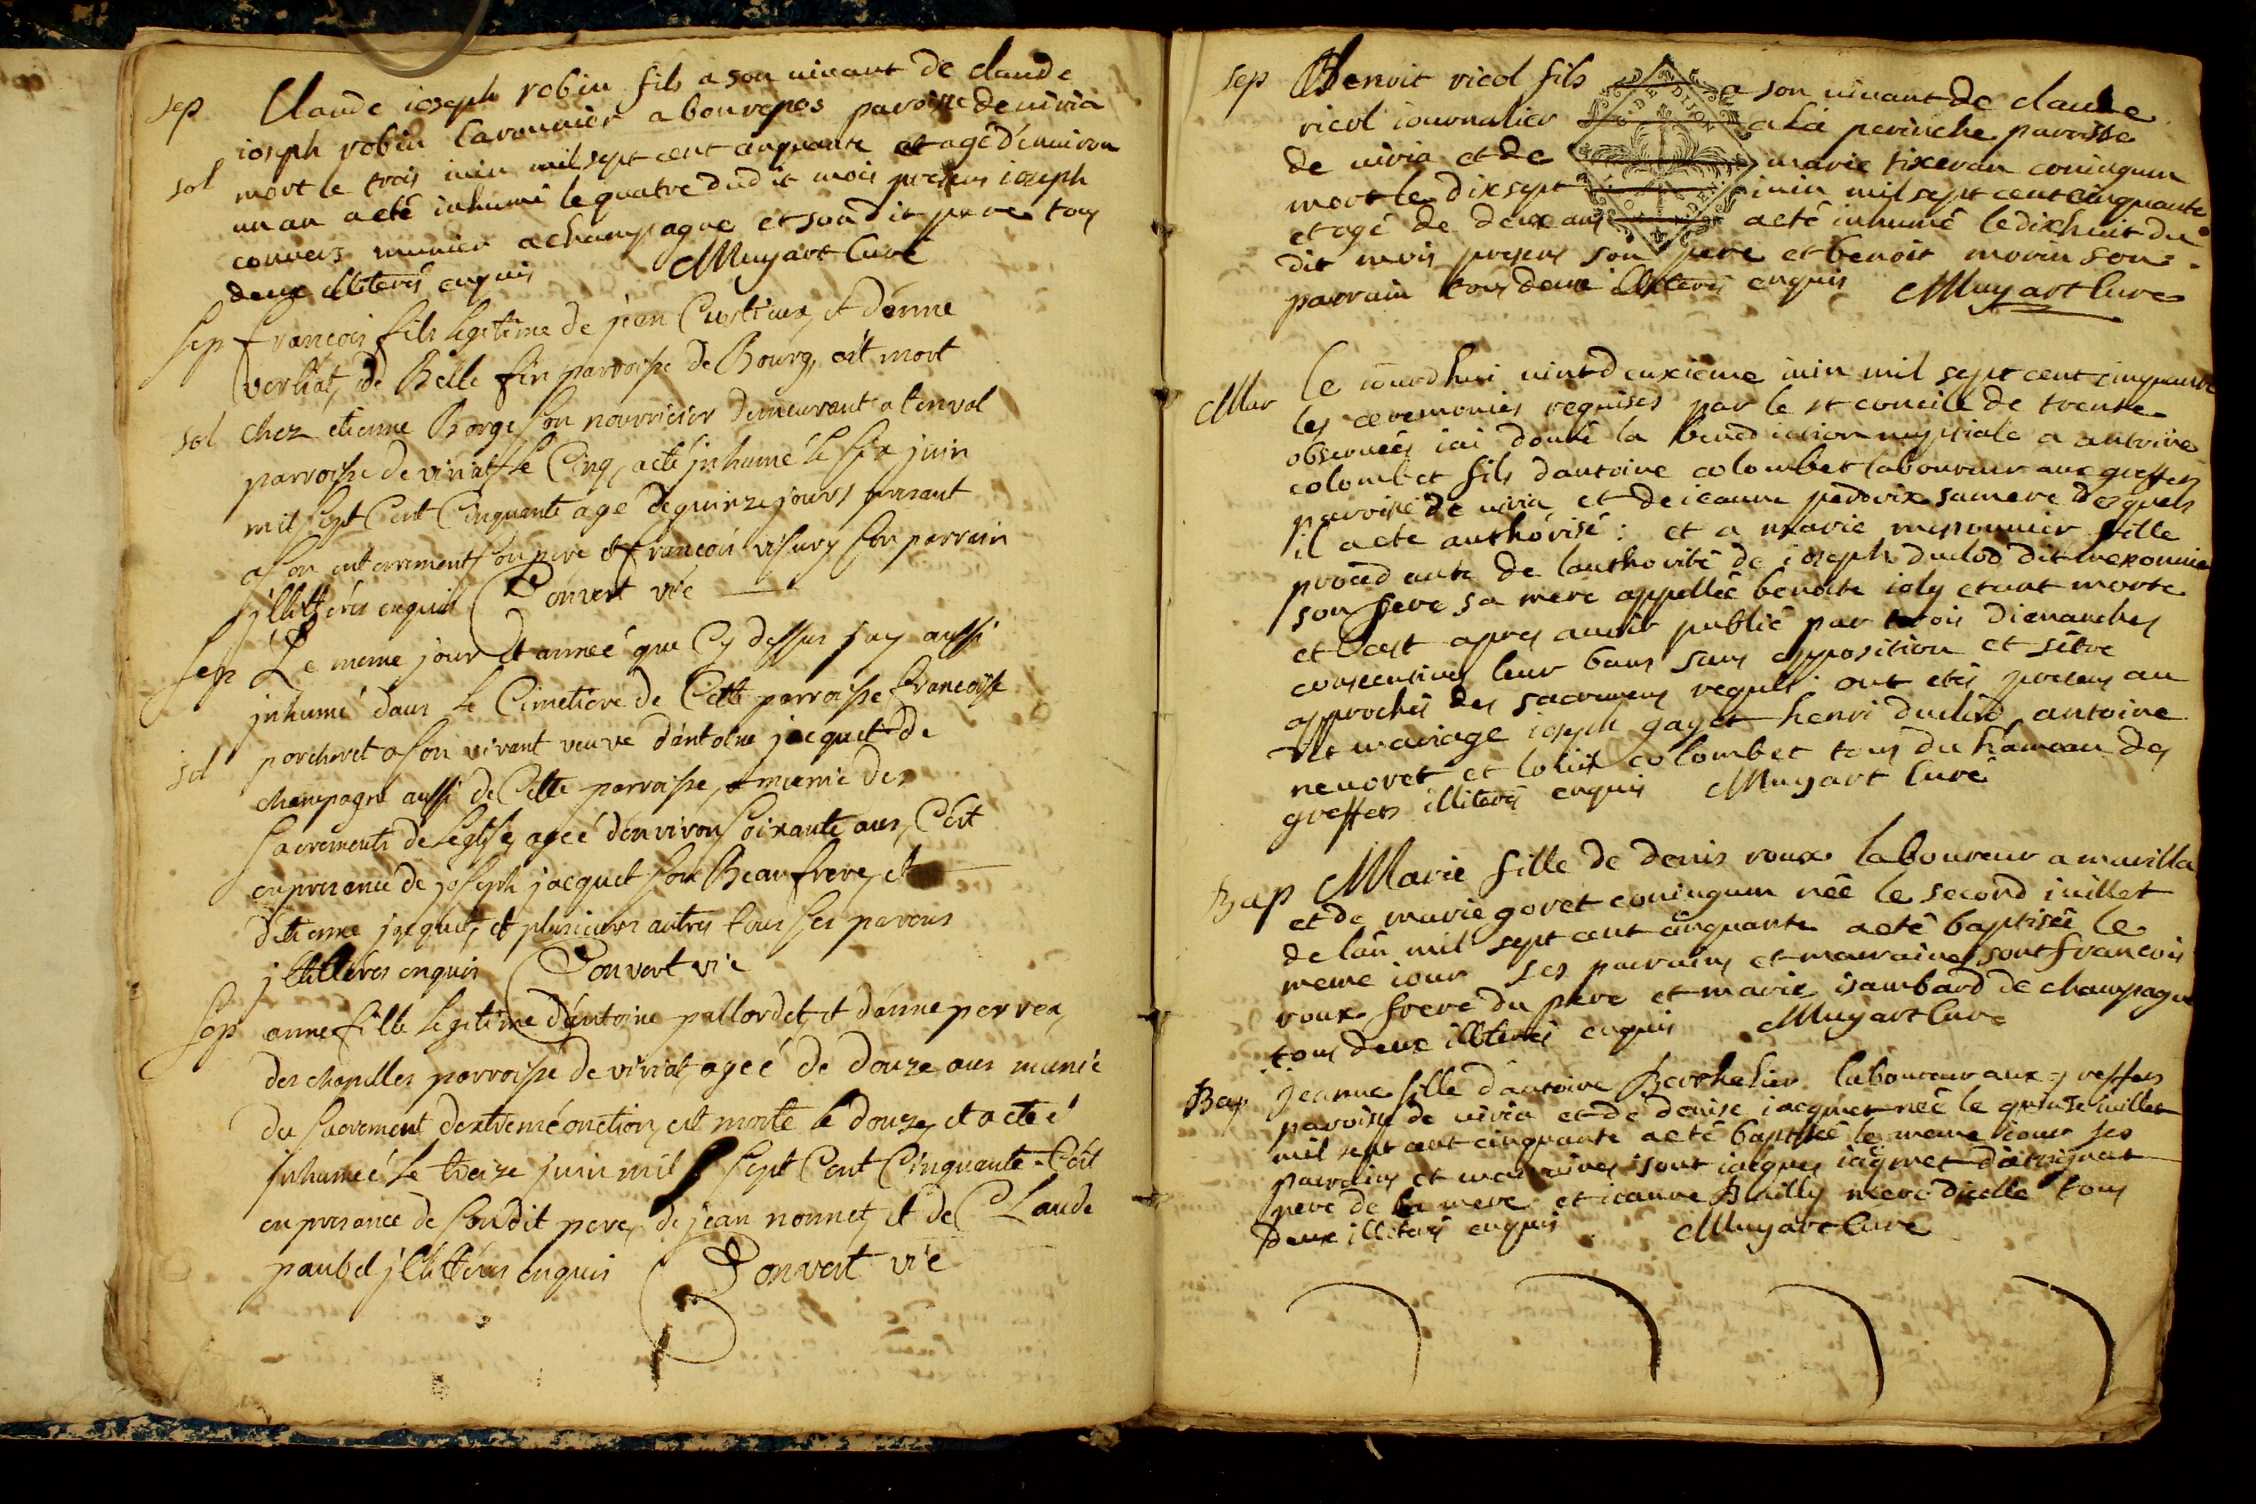 sep Claude ioseph robin fils a son uiuant de claude
ioseph robin a bourepos paroisse de uiria
sol mort le trois iuin mil sept cent cinquante et agé d'enuiron
un an a eté inhumé le quatre dudit mois presens ioseph
conuers munier a champagne et son dit pere tous
deux illiterés enquis Muyart Curé
sep francois fils legitime de jean Curtieux, et d'anne
verliat, de Belle fin parroisse de Bourg, est mort
sol chez etienne Borge son nourricier demeurant a tenval
parroisse de viriat le Cinq, a eté jnhumé le six juin
mil sept Cent Cinquante agé de quinze jours presant
a son enterrement son pere et francois son parrain
jllittérés enquis Convert vic
sep Le meme jour et anneé que Cy dessus j'ay aussi
jnhumé dans le Cimetiere de Cette parroisse francoise
sol porcheret a son vivant veuve d'antoine jacquet de
champagne aussi de Cette parroisse, munie des
sacrements de l'eglise, ageé d'environ soixante ans, C'est
en presance de joseph jacquet son Beaufrere, et
d'etienne jacquet, et plusieurs autres tous ses parens
jllittérés enquis Convert vic
sep anne fille legitime d'antoine pallordet, et d'anne perret,
des chapelles parroisse de viriat, ageé de douze ans munie
du sacrement d'extreme onction, est morte le douze, et a eté
jnhumeé le treize juin mil sept Cent Cinquante. C'est
en presance de son dit pere, de jean nonnet, et de Claude
paubel jllittérés enquis Convert vic
sep Benoit vicol fils a son uiuant de claude
vicol iournalier a la perinche paroisse
de uiria et de marie tixeran coniugum
mort le dix sept iuin mil sept cent cinquante
et agé de deux ans a eté inhumé le dix huit du
dit mois presens son pere et benoit morin son
parrain tous deux illiterés enquis Muyart Curé
DE DIJON
Mar Ce iourdhui uint deuxieme iuin mil sept cent cinquante
les ceremonies requises par le st concile de trente
obseruées iai donné la benediction nuptiale a antoine
colombet fils dantoine colombet laboureur aux greffets
paroisse de uiria et de ieanne perdrix sa mere desquels
il a eté authorisé : et a marie meyonnier fille
procedante de lauthorité de ioseph duclod dit meyonnier
son pere sa mere appellée benoite ioly etant morte
et c'est apres auoir publié par trois dimanches
consecutiues leur bans sans opposition et s'etre
approchés des sacremens requis : ont etés presens au
dit mariage ioseph gayet henri duclod, antoine
neuoret et colombet tous du hameau des
greffets illiterés enquis Muyart Curé
Bap Marie fille de denis roux laboureur a
et de marie goret coniugum née le second iuillet
de lan mil sept cent cinquante a eté baptisée le
meme iour ses parains et maraines sont francois
roux frere du pere et marie isambard de champagne
tous deux illiterés enquis Muyart Curé
Bap Jeanne fille d'antoine Berthelier laboureur aux greffets
paroisse de uiria et de denise iacquet née le quinze iuillet
mil sept cent cinquante a eté baptisée le meme iour ses
parains et maraines sont iacques iaquet d'attignat
pere de la mere et ieanne Builly mere dicelle tous
deux illiterés enquis Muyart Curé